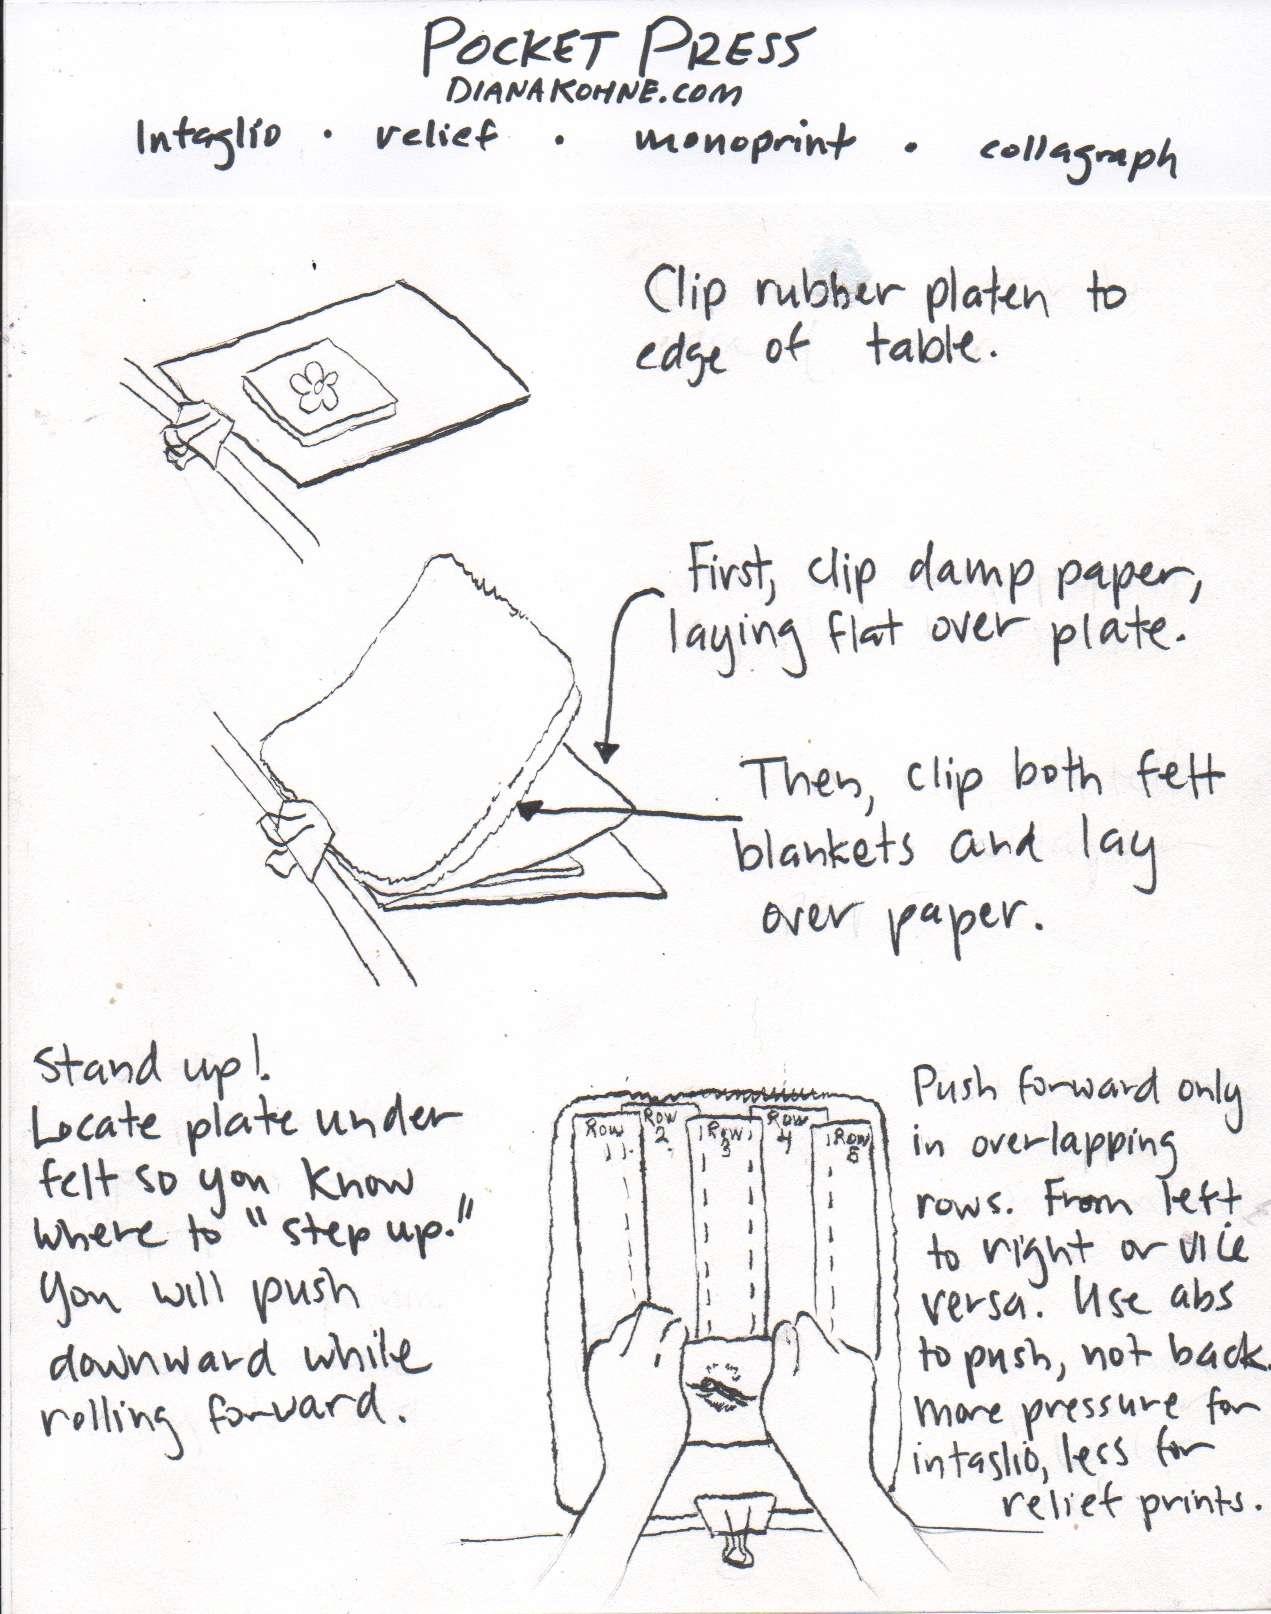 POCKET PRESS
DIANAKOHNE.COM
Intaglio · relief · monoprint · collagraph
Clip rubber platen to
edge of table.
First, clip damp paper,
laying flat over plate.
Then, clip both felt
blankets and lay
over paper.
Stand up!
Locate plate under
felt so you know
where to "step up."
You will push
downward while
rolling forward.
ROW 1
ROW 2
ROW 3
ROW 4
ROW 5
Push forward only
in overlapping
rows. From left
to right or vice
versa. Use abs
to push, not back.
More pressure for
intaglio, less for
relief prints.